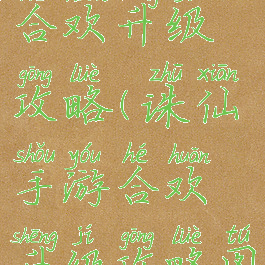 合欢升级
gōng lüè zhū xiān
攻略(诛仙
shǒu yóu hé huān
手游合欢
shēng jí gōng lüè tú
升级攻略图